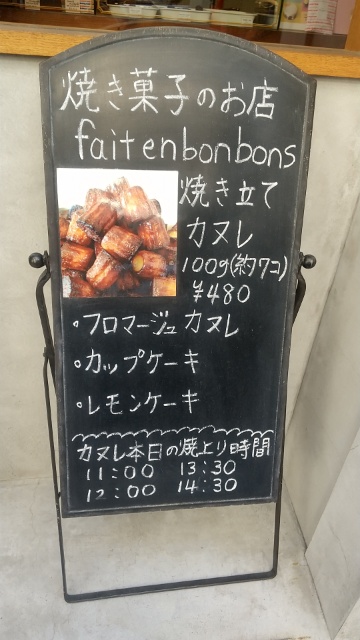 焼き菓子のお店
faitenbonbons
焼き立て
カヌレ
100g(約7コ)
¥480
・フロマージュカヌレ
・カップケーキ
・レモンケーキ
カヌレ本日の焼上り時間
11:00 13:30
12:00 14:30